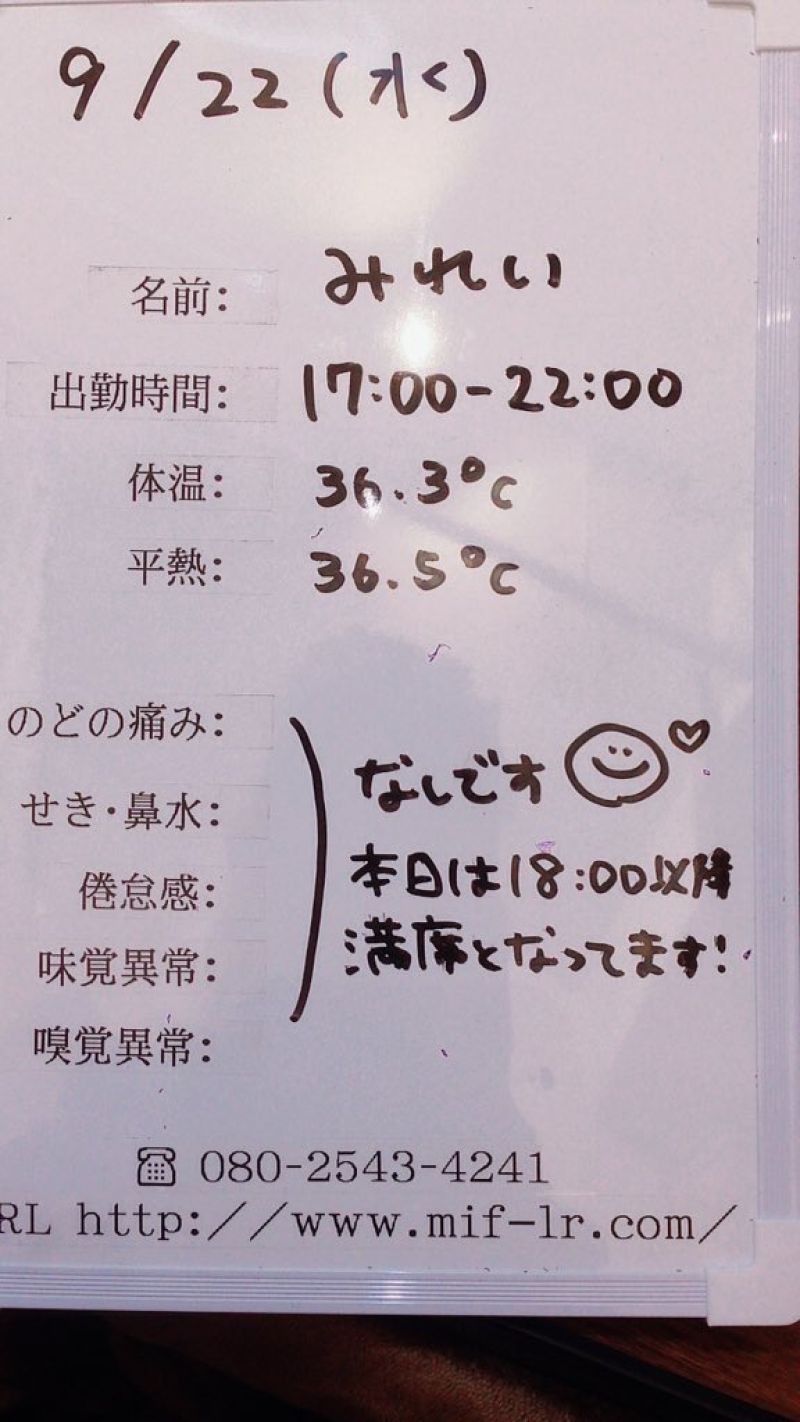 9/22(水)
名前: みれい
出勤時間: 17:00-22:00
体温: 36.3°C
平熱: 36.5°C
のどの痛み:
せき・鼻水:
倦怠感:
味覚異常:
嗅覚異常:
なしです
本日は18:00以降
満席となってます!
☎ 080-2543-4241
RL http://www.mif-lr.com/